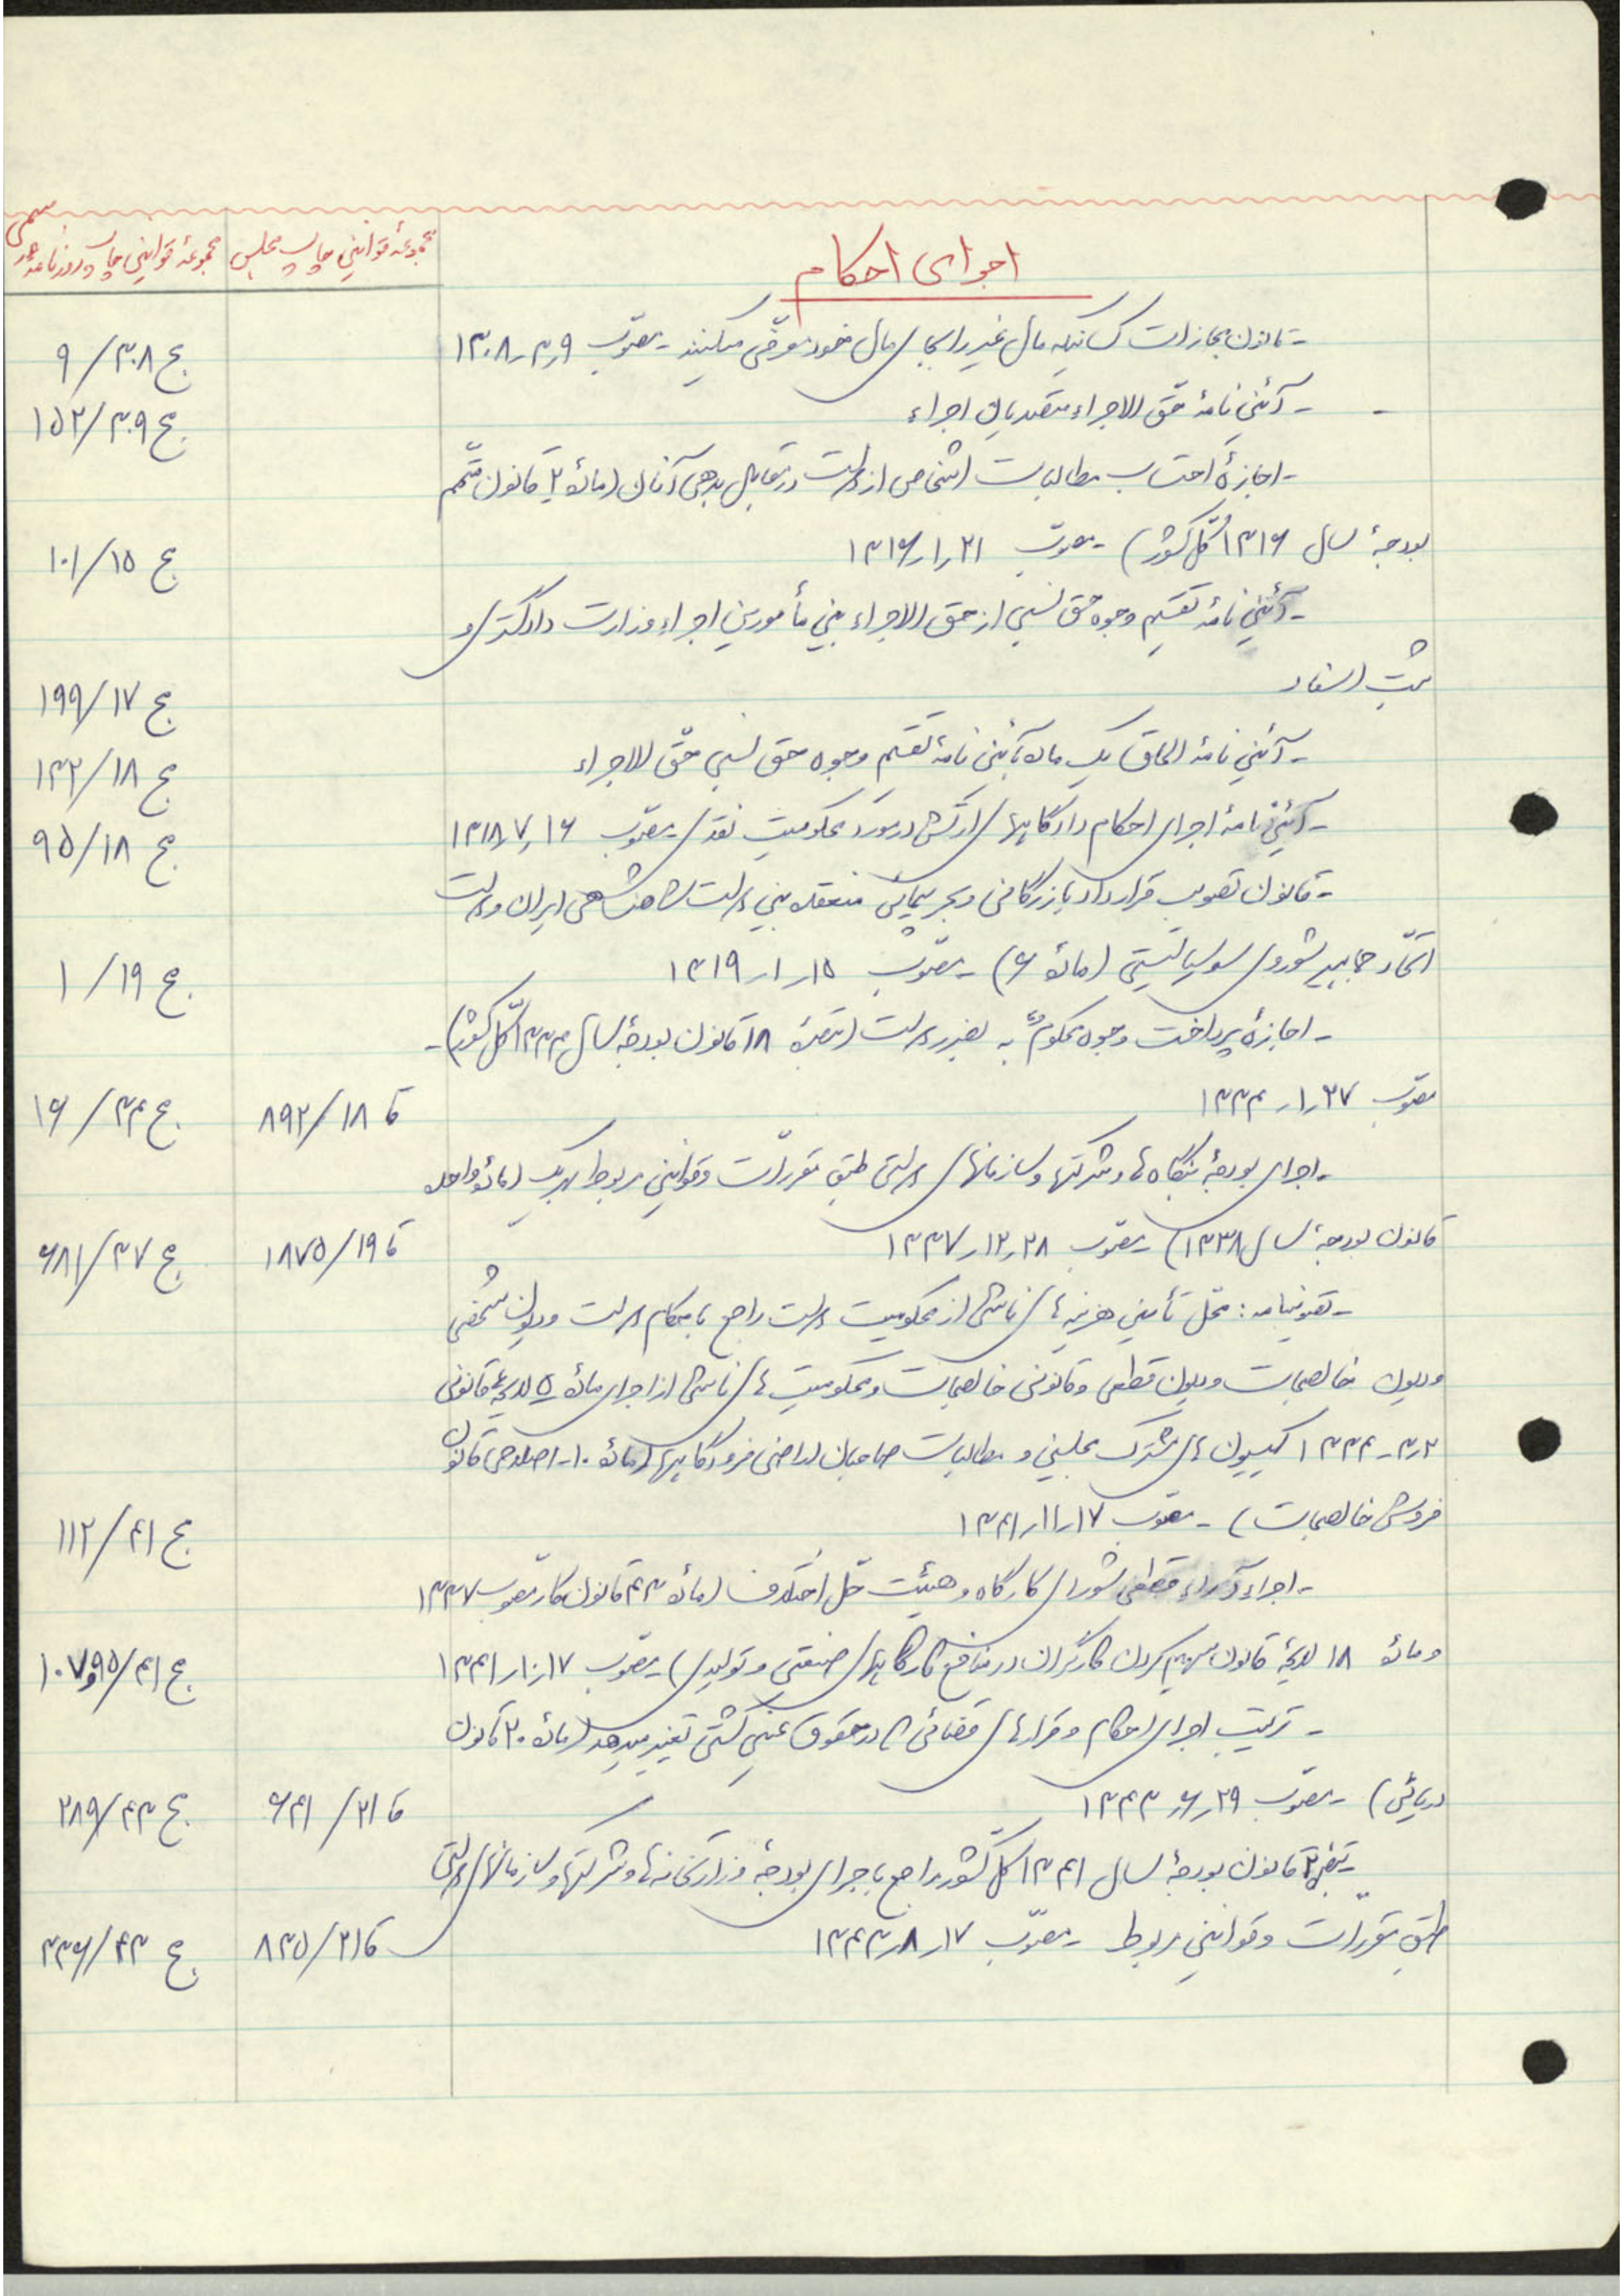 اجرای احکام
مجموعهٔ قوانین چاپ مجلس
مجموعهٔ قوانین چاپ روزنامهٔ رسمی
- قانون مجازات کسانیکه مال غیر را بجای مال خود معرفی میکنند - مصوّب ۹ر۳ر۱۳۰۸
ج ۳۰۸/ ۹
- آئین نامهٔ حق الاجراء متصدیان اجراء
ج ۳۰۹/ ۱۵۲
- اجازهٔ احتساب مطالبات اشخاص از دولت در مقابل بدهی آنان (مادهٔ ۲ قانون متمّم
بودجهٔ سال ۱۳۱۶ کلّ کشور) - مصوّب ۲۱ر۱ر۱۳۱۶
ج ۱۵/ ۱۰۱
- آئین نامهٔ تقسیم وجوه حق نسبی از حق الاجراء بین مأمورین اجراء وزارت دادگستری و
ثبت اسناد
ج ۱۷/ ۱۹۹
- آئین نامهٔ الحاق یک ماده بآئین نامهٔ تقسیم وجوه حق نسبی حقّ الاجراء
ج ۱۸/ ۱۳۲
- آئین نامهٔ اجرای احکام دادگاههای ارتش در مورد محکومیت نقدی - مصوّب ۱۶ر۷ر۱۳۱۸
ج ۱۸/ ۹۵
- قانون تصویب قرارداد بازرگانی و بحر پیمائی منعقده بین دولت شاهنشاهی ایران و دولت
اتّحاد جماهیر شوروی سوسیالیستی (مادهٔ ۶) - مصوّب ۱۵ر۱ر۱۳۱۹
ج ۱۹/ ۱
- اجازهٔ پرداخت وجوه محکومٌ به بضرر دولت (تبصرهٔ ۱۸ قانون بودجهٔ سال ۱۳۳۴ کلّ کشور) -
مصوّب ۲۷ر۱ر۱۳۳۴
قا ۱۸/ ۸۹۲
ج ۳۴/ ۱۶
- اجرای بودجهٔ بنگاه ها و شرکتها و سازمانهای دولتی طبق مقرّرات و قوانین مربوط بهریک (مادهٔ واحده
قانون بودجهٔ سال ۱۳۳۸) - مصوّب ۲۸ر۱۲ر۱۳۳۷
قا ۱۹/ ۱۸۷۵
ج ۳۷/ ۶۸۱
- تصویبنامه: محّل تأمین هزینه های ناشی از محکومیت دولت راجع باحکام دولت و دیون شخصی
و دیون خالصجات و دیون قطعی و قانونی خالصجات و محکومیت های ناشی از اجرای مادهٔ ۵ لایحهٔ قانونی
۲ر۳ر۱۳۳۴ کمیسیون های مشترک مجلسین و مطالبات صاحبان اراضی فرودگاهها (مادهٔ ۱۰ - اصلاحی قانون
فروش خالصجات) - مصوّب ۱۷ر۱۱ر۱۳۴۱
ج ۴۱/ ۱۱۲
- اجراء آراء قطعی شورای کارگاه و هیئت حلّ اختلاف (مادهٔ ۴۳ قانون کار مصوّب ۱۳۳۷
و مادهٔ ۱۸ لایحهٔ قانون سهیم کردن کارگران در منافع کارگاههای صنعتی و تولیدی) - مصوّب ۱۷ر۱۰ر۱۳۴۱
ج ۴۱/ ۹۵ و ۱۰۷
- ترتیب اجرای احکام و قرارهای قضائی که در حقوق عینی کشتی تغییر میدهد (مادهٔ ۲۰ قانون
دریائی) - مصوّب ۲۹ر۶ر۱۳۴۳
قا ۲۱/ ۶۴۱
ج ۴۳/ ۲۸۹
- تبصره ۲ قانون بودجهٔ سال ۱۳۴۱ کلّ کشور راجع باجرای بودجهٔ وزارتخانه ها و شرکتها و سازمانهای دولتی
طبق مقرّرات و قوانین مربوط - مصوّب ۱۷ر۸ر۱۳۴۳
قا ۲۱/ ۸۳۵
ج ۴۳/ ۳۳۶